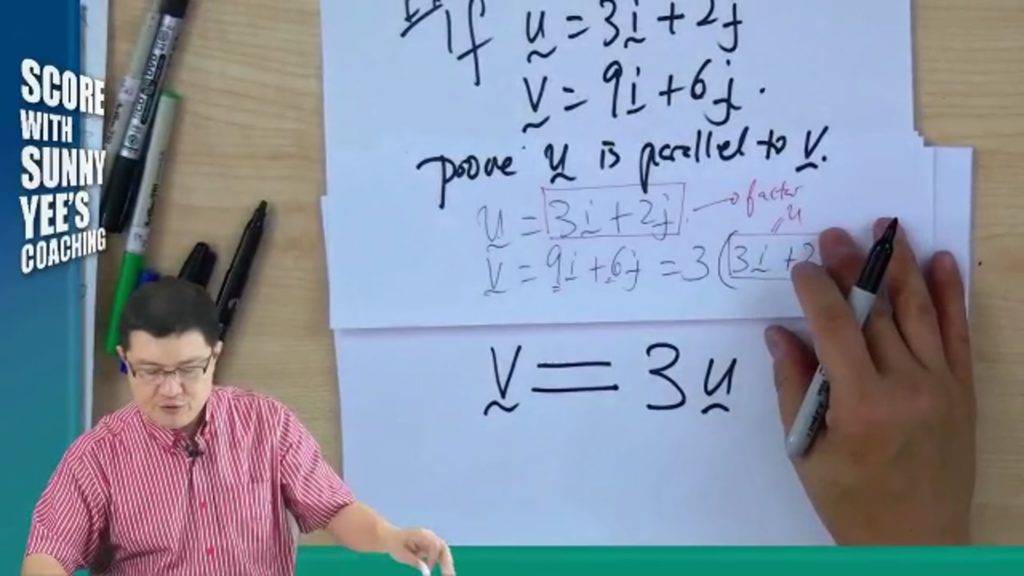 SCORE
WITH
SUNNY
YEE'S
COACHING
If u = 3i + 2j
v = 9i + 6j.
prove u is parallel to v.
u = 3i + 2j → factor
u
v = 9i + 6j = 3(3i + 2
v = 3u